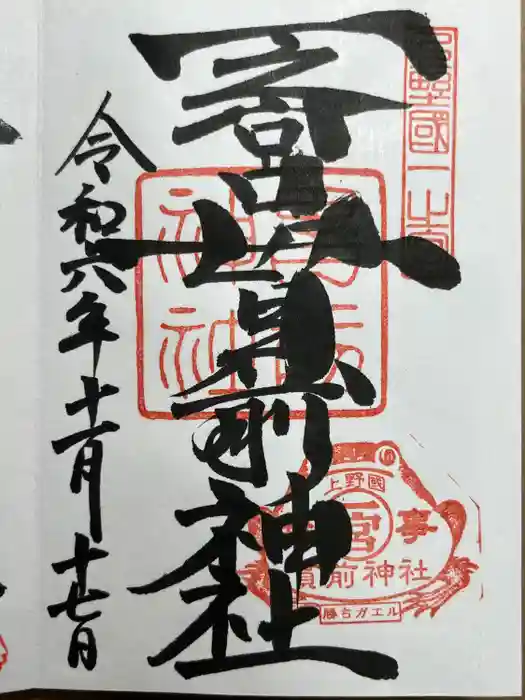 上野國一之宮
一之宮貫前神社
貫前
神社
令和六年十一月十七日
上野國
一宮
事
貫前神社
勝ちガエル